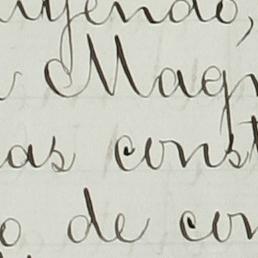 uyendo,
Magn
as const
o de con